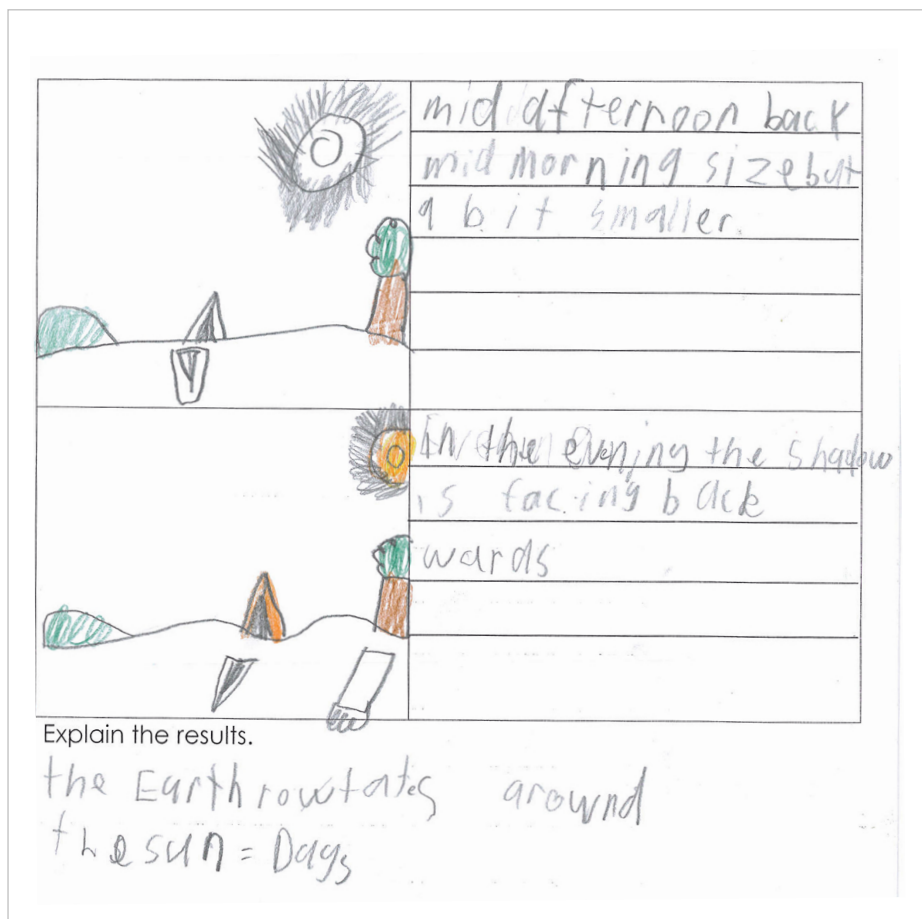 mid afternoon back
mid morning size but
a bit smaller.
in the evening the shadow
is facing back
wards
Explain the results.
the Earth rowtates around
the sun = Days